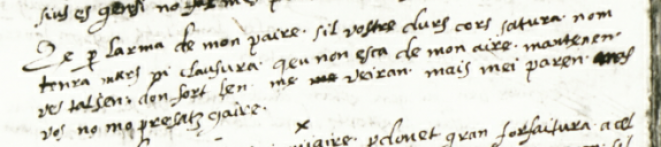 sius es gensi no
Ze p larma de mon paire. sil vostre durs cors satura. nom
tenra mars pi clausura. qeu non esca de mon aire. mantenen
ves talsen. don fort len. me veiran. mais mei paren. mas
vos no mo presatz gaire.
x
gran forfaitura. a cel